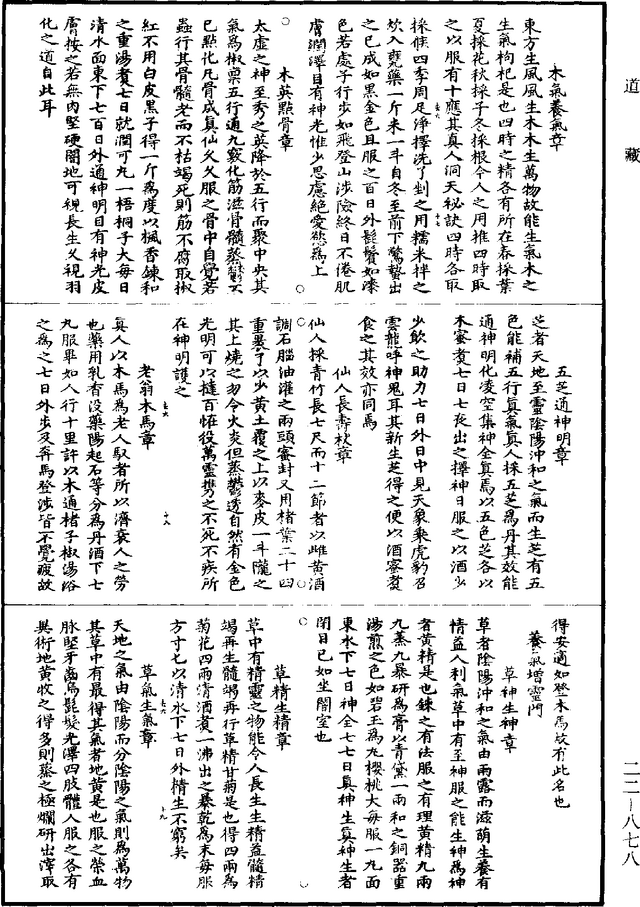 道藏
木氣養氣章
東方生風風生木木生萬物故能生氣木之
生氣枸杞是也四時之精各有所在春採葉
夏採花秋採子冬採根令人之用推四時取
之以服有十應其真人洞天秘訣四時各取
採候四季周足淨擇洗了剉之用糯米拌之
炊入甕藥一斤米一斗自冬至前下驚蟄出
之已成如黑金色且服之百日外髭鬢如漆
色若處子行步如飛登山涉險終日不倦肌
膚潤澤目有神光惟少思慮絕愛慾為上
木英點骨章
太虛之神至秀之英降於五行而聚中央其
氣為椒稟五行通九竅化筋滋骨髓蒸鬱六
已點化凡骨成真仙久久服之骨中自覺若
蟲行其骨髓老而不枯竭死則筋不腐取椒
紅不用白皮黑子得一斤為度以楓香鍊和
之重湯煑七日就潤可丸一梧桐子大每日
清水面東下七百日外通神明目有神光皮
膚按之若無肉堅硬闇地可視長生久視羽
化之道自此耳
五芝通神明章
芝者天地至靈陰陽沖和之氣而生芝有五
色能補五行真氣真人採五芝為丹其效能
通神明化凌空集神全真焉以五色芝各以
木蜜煑七日七夜出之擇神日服之以酒少
少飲之助力七日外日中見天象乘虎豹召
雲龍呼神鬼耳其新生芝得之便以酒蜜煑
食之其效亦同焉
仙人長壽秋章
仙人採青竹長七尺而十二節者以雌黃酒
調石腦油灌之兩頭蜜封又用楮葉二十四
重裹了以少黃土覆之上以麥皮一斗隴之
其上燒之勿令火炎但蒸鬱透自然有金色
光明可以撻百怪役萬靈携之不死不疾所
在神明護之
老翁木馬章
真人以木馬為老人馭者所以濟衰人之勞
也藥用乳香沒藥陽起石等分為丹酒下七
丸服畢如人行十里許以木通楮子椒湯浴
之為之七日外步及奔馬登涉皆不覺疲故
得安適如登木馬故有此名也
養氣增靈門
草神生神章
草者陰陽沖和之氣由雨露而滋萌生養有
情益人利氣草中有至神服之能生神為神
者黃精是也鍊之有法服之有理黃精九兩
九蒸九暴研為膏以青黛一兩和之銅器重
湯煎之色如碧玉為丸櫻桃大每服一丸面
東水下七日神全七七日真神生真神生者
閉目已如坐闇室也
草精生精章
草中有精靈之物能令人長生生精益髓精
竭再生髓竭再行草精甘菊是也得四兩為
菊花四兩清酒煑一沸出之暴乾為末每服
方寸匕以清水下七日外精生不窮矣
草氣生氣章
天地之氣由陰陽而分陰陽之氣則為萬物
其草中有最得其氣者地黃是也服之榮血
脉堅牙齒烏髭髮光澤四肢體人服之各有
異術地黃收之得多則蒸之極爛研出滓取
二二—八七八